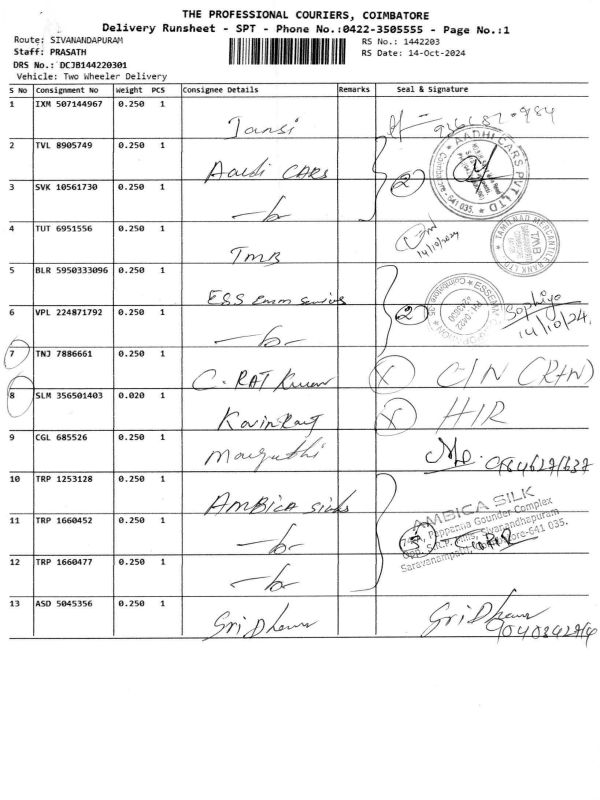 THE PROFESSIONAL COURIERS, COIMBATORE
Delivery Runsheet - SPT - Phone No.:0422-3505555 - Page No.:1
Route: SIVANANDAPURAM RS No.: 1442203
Staff: PRASATH RS Date: 14-Oct-2024
DRS No.: DCJB144220301
Vehicle: Two Wheeler Delivery
S No Consignment No Weight PCS Consignee Details Remarks Seal & Signature
1 IXM 507144967 0.250 1 Jansi
2 TVL 8905749 0.250 1 Aadi CARS
AADHI CARS PVT LTD
Coimbatore - 641 035.
3 SVK 10561730 0.250 1 2
4 TUT 6951556 0.250 1 TMB 14/10/2024
TAMILNAD MERCANTILE BANK LTD
5 BLR 5950333096 0.250 1 ESS emm
6 VPL 224871792 0.250 1 2 Sophiya
14/10/24
7 TNJ 7886661 0.250 1 C. RAJ Kumar X C/N
8 SLM 356501403 0.020 1 Kavin Raj X
9 CGL 685526 0.250 1
10 TRP 1253128 0.250 1 AMBICA
AMBICA SILK
Pappanna Gounder Complex
Sivanandhapuram
Saravanampatti
641 035.
11 TRP 1660452 0.250 1 3
12 TRP 1660477 0.250 1
13 ASD 5045356 0.250 1 Sri Dharan Sri Dharan